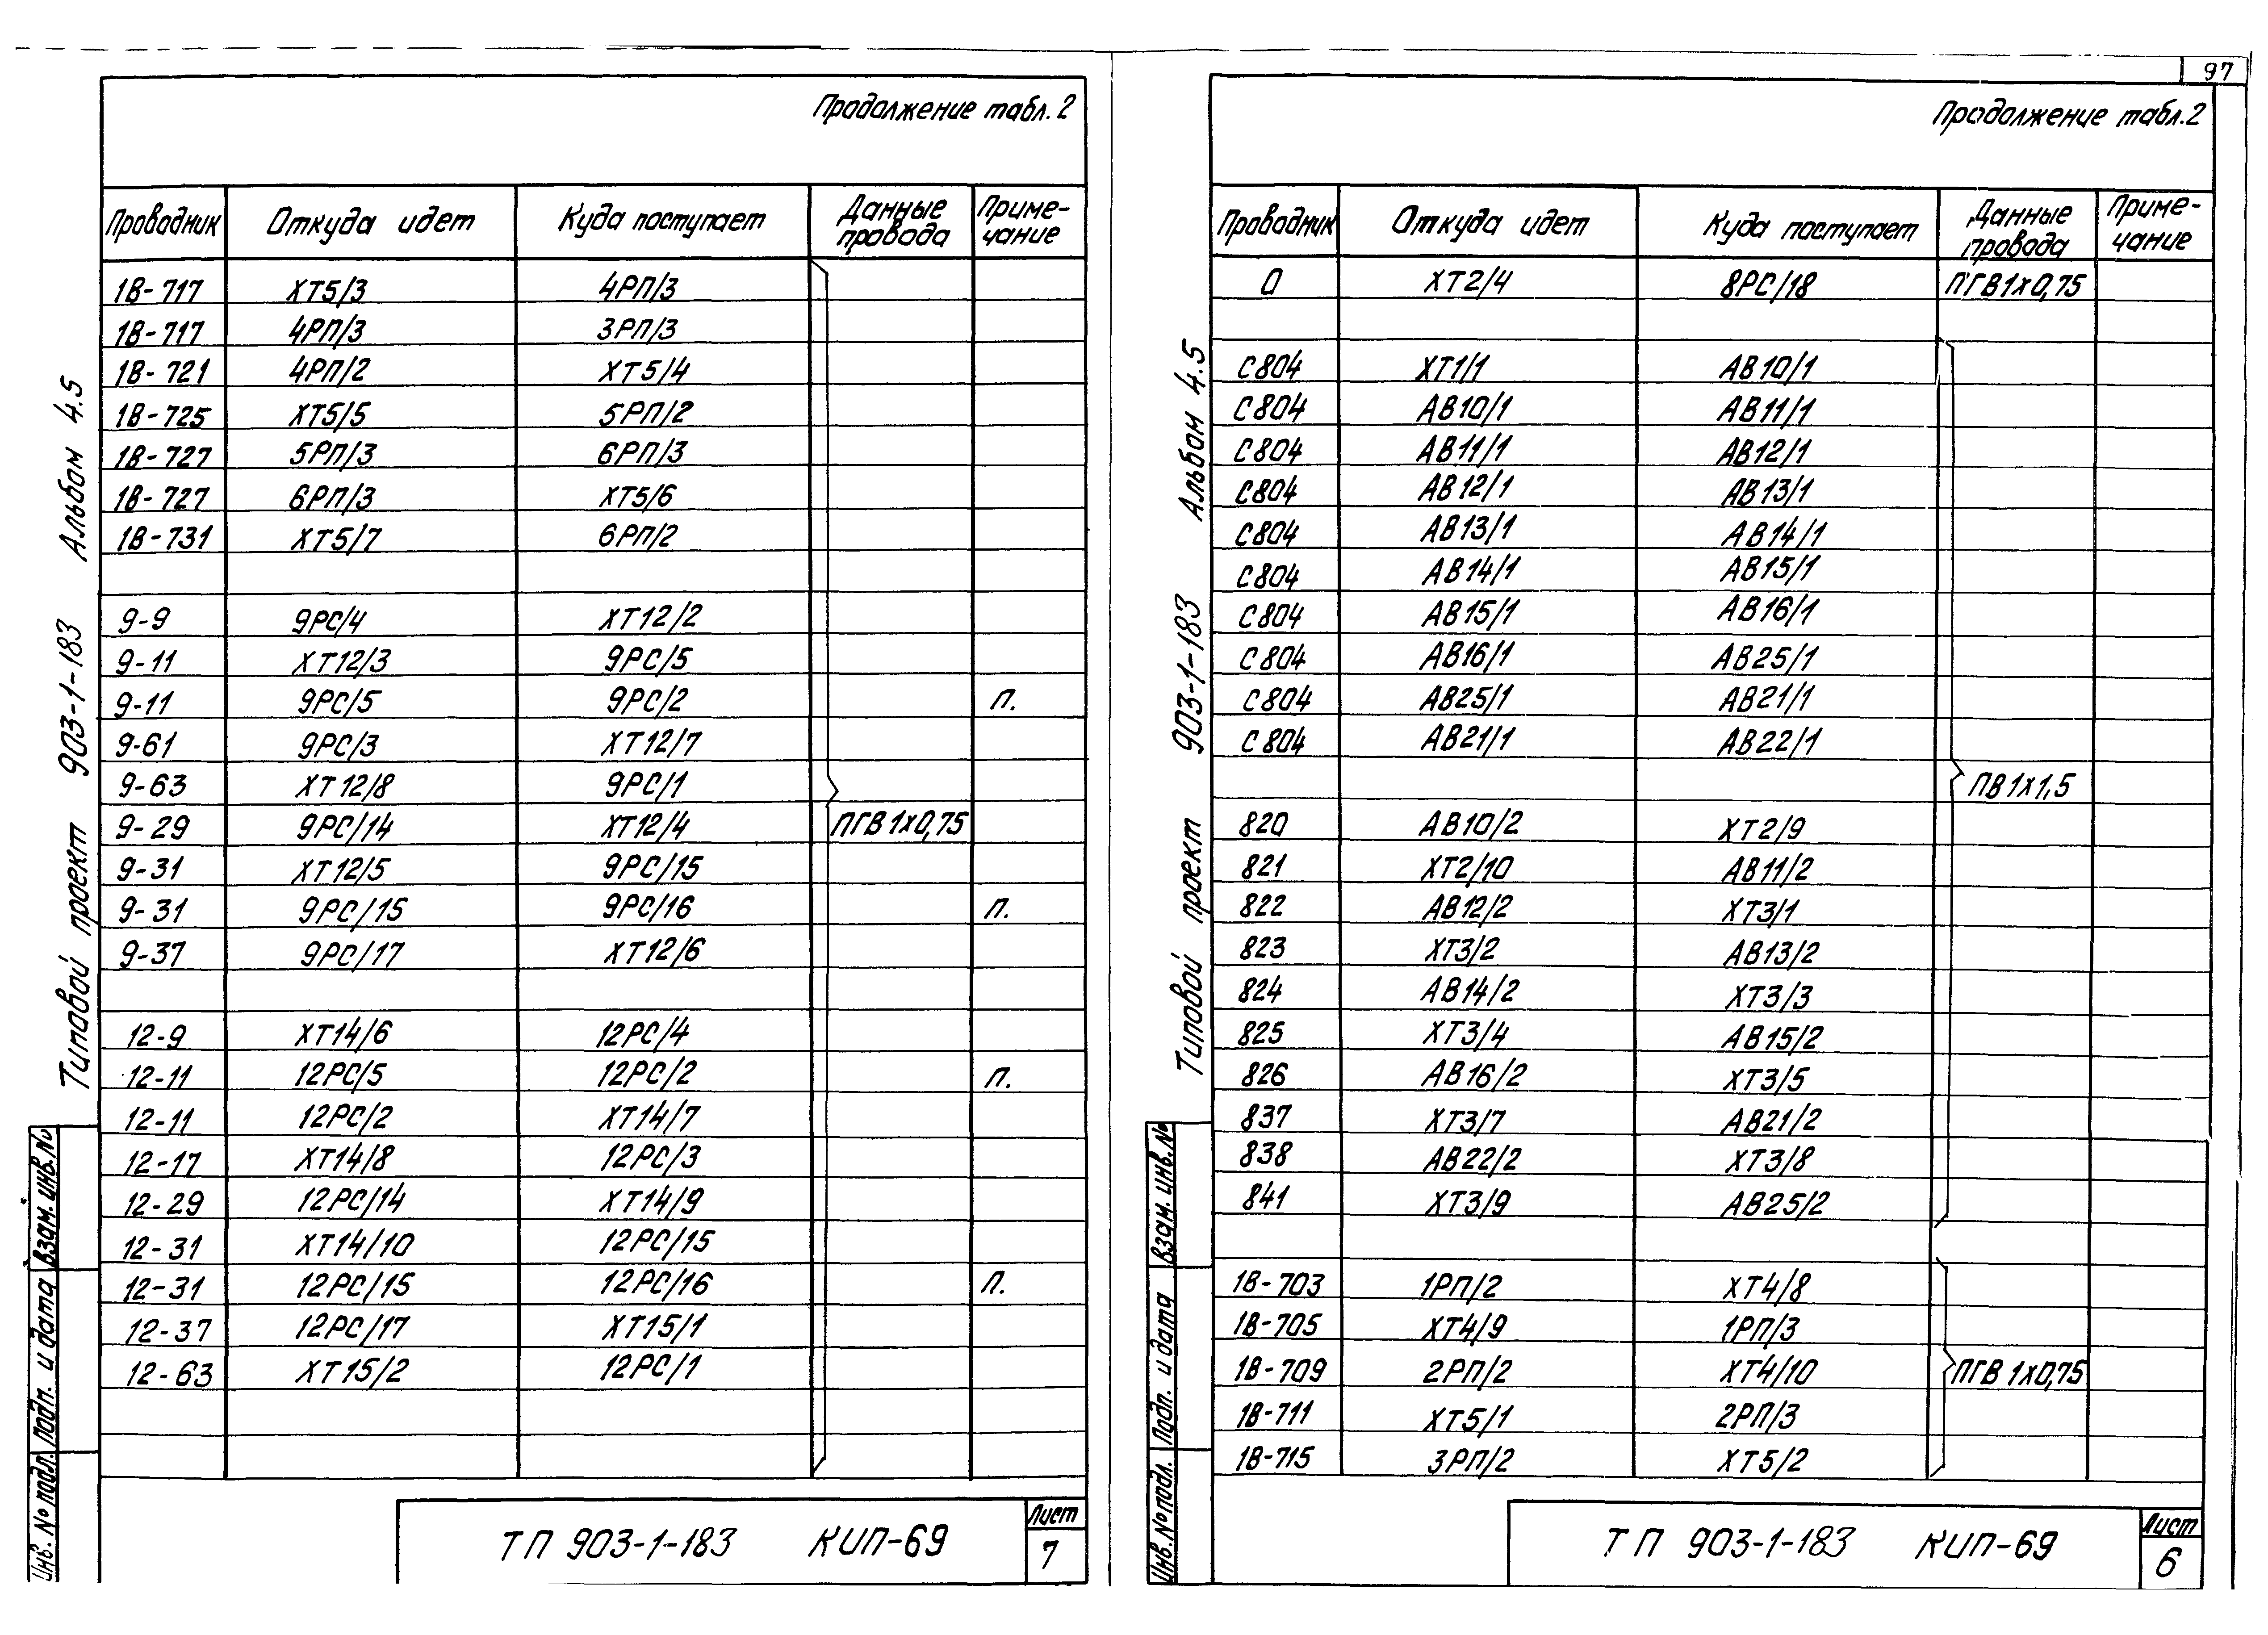 Продолжение табл. 2
Проводник Откуда идет Куда поступает Данные провода Приме-чание
1В-717 ХТ5/3 4РП/3
1В-717 4РП/3 3РП/3
1В-721 4РП/2 ХТ5/4
1В-725 ХТ5/5 5РП/2
1В-727 5РП/3 6РП/3
1В-727 6РП/3 ХТ5/6
1В-731 ХТ5/7 6РП/2
9-9 9РС/4 ХТ12/2
9-11 ХТ12/3 9РС/5
9-11 9РС/5 9РС/2 п.
9-61 9РС/3 ХТ12/7
9-63 ХТ12/8 9РС/1
9-29 9РС/14 ХТ12/4 ПГВ 1х0,75
9-31 ХТ12/5 9РС/15
9-31 9РС/15 9РС/16 п.
9-37 9РС/17 ХТ12/6
12-9 ХТ14/6 12РС/4
12-11 12РС/5 12РС/2 п.
12-11 12РС/2 ХТ14/7
12-17 ХТ14/8 12РС/3
12-29 12РС/14 ХТ14/9
12-31 ХТ14/10 12РС/15
12-31 12РС/15 12РС/16 п.
12-37 12РС/17 ХТ15/1
12-63 ХТ15/2 12РС/1
Типовой проект 903-1-183 Альбом 4.5
Инв. № подл. Подп. и дата Взам. инв. №
ТП 903-1-183 КИП-69
Лист
7
97
Продолжение табл. 2
Проводник Откуда идет Куда поступает Данные провода Приме-чание
0 ХТ2/4 8РС/18 ПГВ1х0,75
С804 ХТ1/1 АВ10/1
С804 АВ10/1 АВ11/1
С804 АВ11/1 АВ12/1
С804 АВ12/1 АВ13/1
С804 АВ13/1 АВ14/1
С804 АВ14/1 АВ15/1
С804 АВ15/1 АВ16/1
С804 АВ16/1 АВ25/1
С804 АВ25/1 АВ21/1
С804 АВ21/1 АВ22/1
ПВ1х1,5
820 АВ10/2 ХТ2/9
821 ХТ2/10 АВ11/2
822 АВ12/2 ХТ3/1
823 ХТ3/2 АВ13/2
824 АВ14/2 ХТ3/3
825 ХТ3/4 АВ15/2
826 АВ16/2 ХТ3/5
837 ХТ3/7 АВ21/2
838 АВ22/2 ХТ3/8
841 ХТ3/9 АВ25/2
1В-703 1РП/2 ХТ4/8
1В-705 ХТ4/9 1РП/3
1В-709 2РП/2 ХТ4/10 ПГВ 1х0,75
1В-711 ХТ5/1 2РП/3
1В-715 3РП/2 ХТ5/2
Типовой проект 903-1-183 Альбом 4.5
Инв. № подл. Подп. и дата Взам. инв. №
ТП 903-1-183 КИП-69
Лист
6